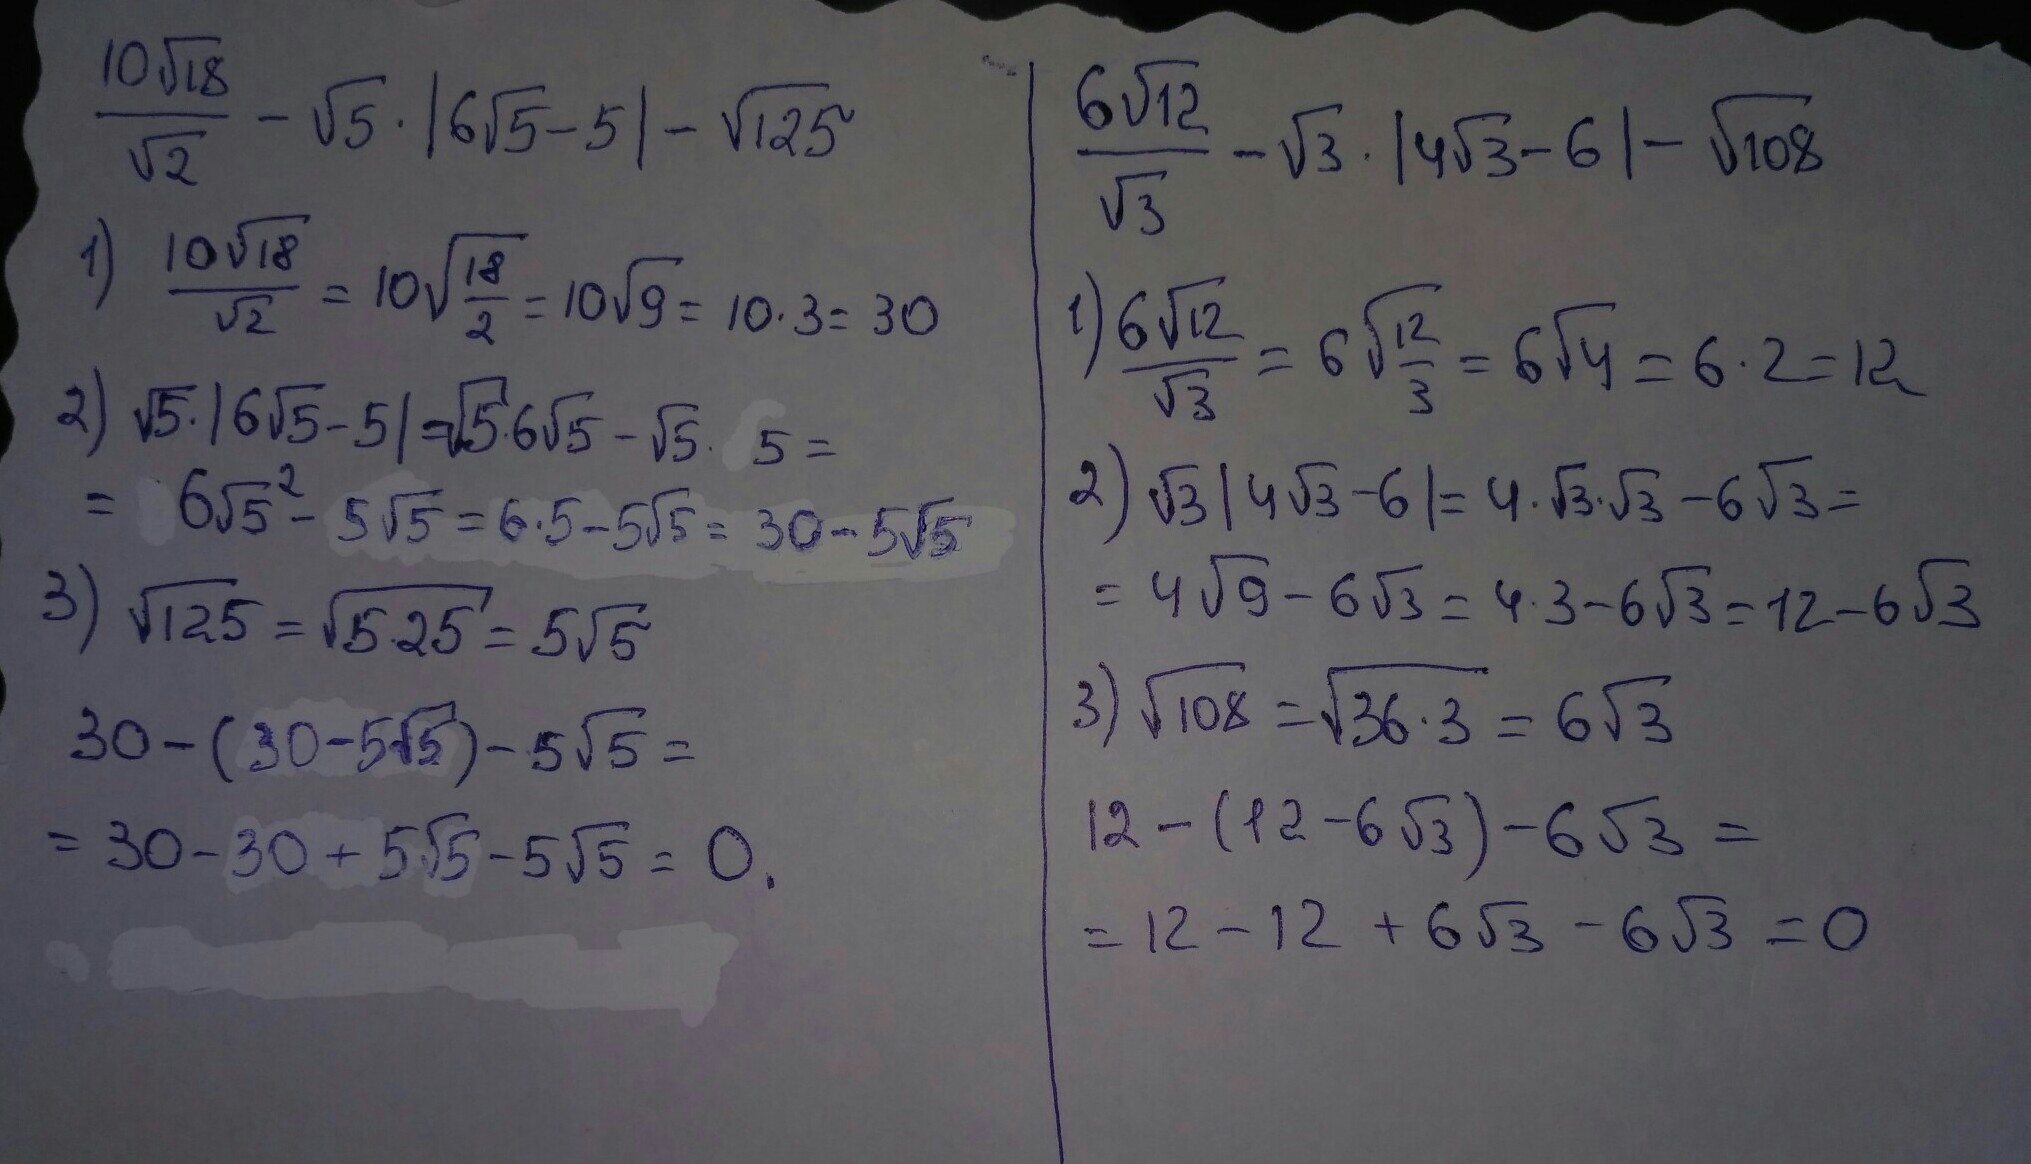 10√18/√2 - √5 · |6√5 - 5| - √125
1) 10√18/√2 = 10√18/2 = 10√9 = 10·3 = 30
2) √5·|6√5-5| = √5·6√5 - √5· 5 =
= 6√5² - 5√5 = 6·5 - 5√5 = 30 - 5√5
3) √125 = √5·25 = 5√5
30 - (30 - 5√5) - 5√5 =
= 30 - 30 + 5√5 - 5√5 = 0.
6√12/√3 - √3 · |4√3 - 6| - √108
1) 6√12/√3 = 6√12/3 = 6√4 = 6·2 = 12
2) √3|4√3-6| = 4·√3·√3 - 6√3 =
= 4√9 - 6√3 = 4·3 - 6√3 = 12 - 6√3
3) √108 = √36·3 = 6√3
12 - (12 - 6√3) - 6√3 =
= 12 - 12 + 6√3 - 6√3 = 0